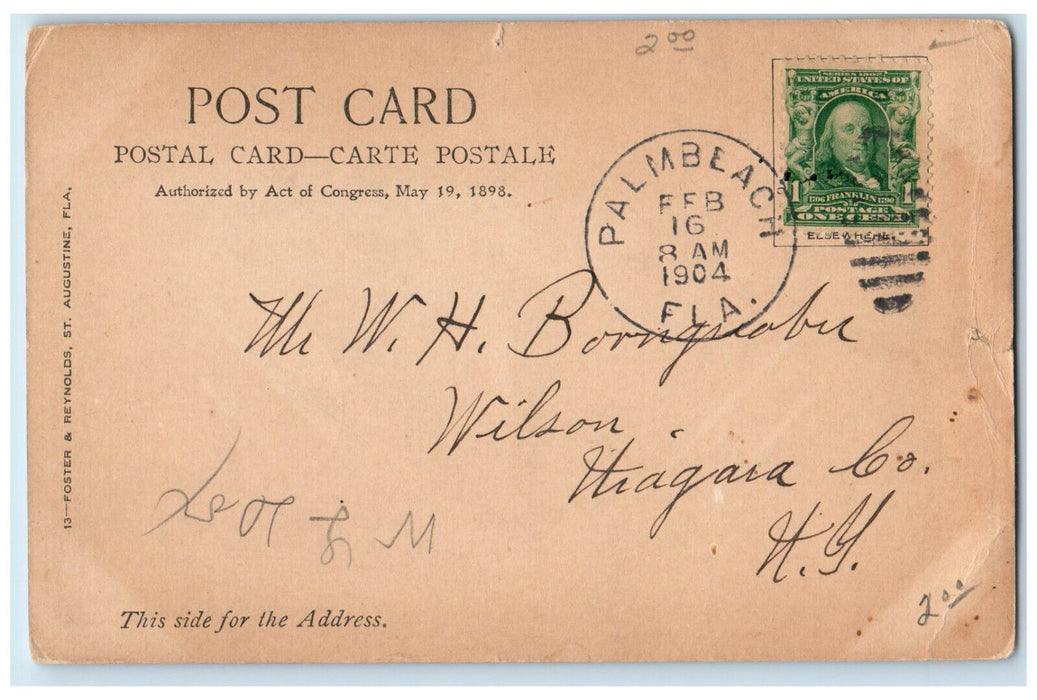 2.00
POST CARD
POSTAL CARD—CARTE POSTALE
Authorized by Act of Congress, May 19, 1898.
SERIES 1902
UNITED STATES OF
AMERICA
1 1
1706 FRANKLIN 1790
POSTAGE
ONE CENT
ELSEWHERE.
PALMBEACH
FEB
16
8 AM
1904
FLA.
Mr W. H.
Wilson
Niagara Co.
N.Y.
13—FOSTER & REYNOLDS, ST. AUGUSTINE, FLA.
This side for the Address.
2.00